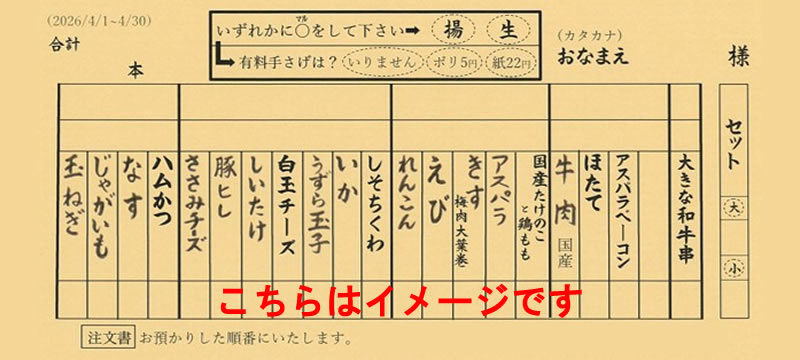 (2026/4/1~4/30)
合計
本
いずれかに○をして下さい➡ 揚 生
マル
有料手さげは？ いりません ポリ5円 紙22円
(カタカナ)
おなまえ
様
セット
大
小
大きな和牛串
アスパラベーコン
ほたて
牛肉 国産
国産たけのこと鶏もも
アスパラ
きす 梅肉大葉巻
えび
れんこん
しそちくわ
いか
うずら玉子
白玉チーズ
しいたけ
豚ヒレ
ささみチーズ
ハムかつ
なす
じゃがいも
玉ねぎ
こちらはイメージです
注文書 お預かりした順番にいたします。